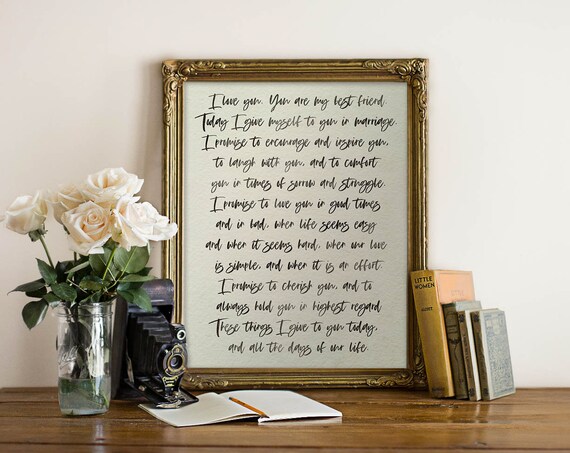 I love you. You are my best friend.
Today I give myself to you in marriage.
I promise to encourage and inspire you,
to laugh with you, and to comfort
you in times of sorrow and struggle.
I promise to love you in good times
and in bad, when life seems easy
and when it seems hard, when our love
is simple, and when it is an effort.
I promise to cherish you, and to
always hold you in highest regard.
These things I give to you today,
and all the days of our life.
LITTLE
WOMEN
ALCOTT